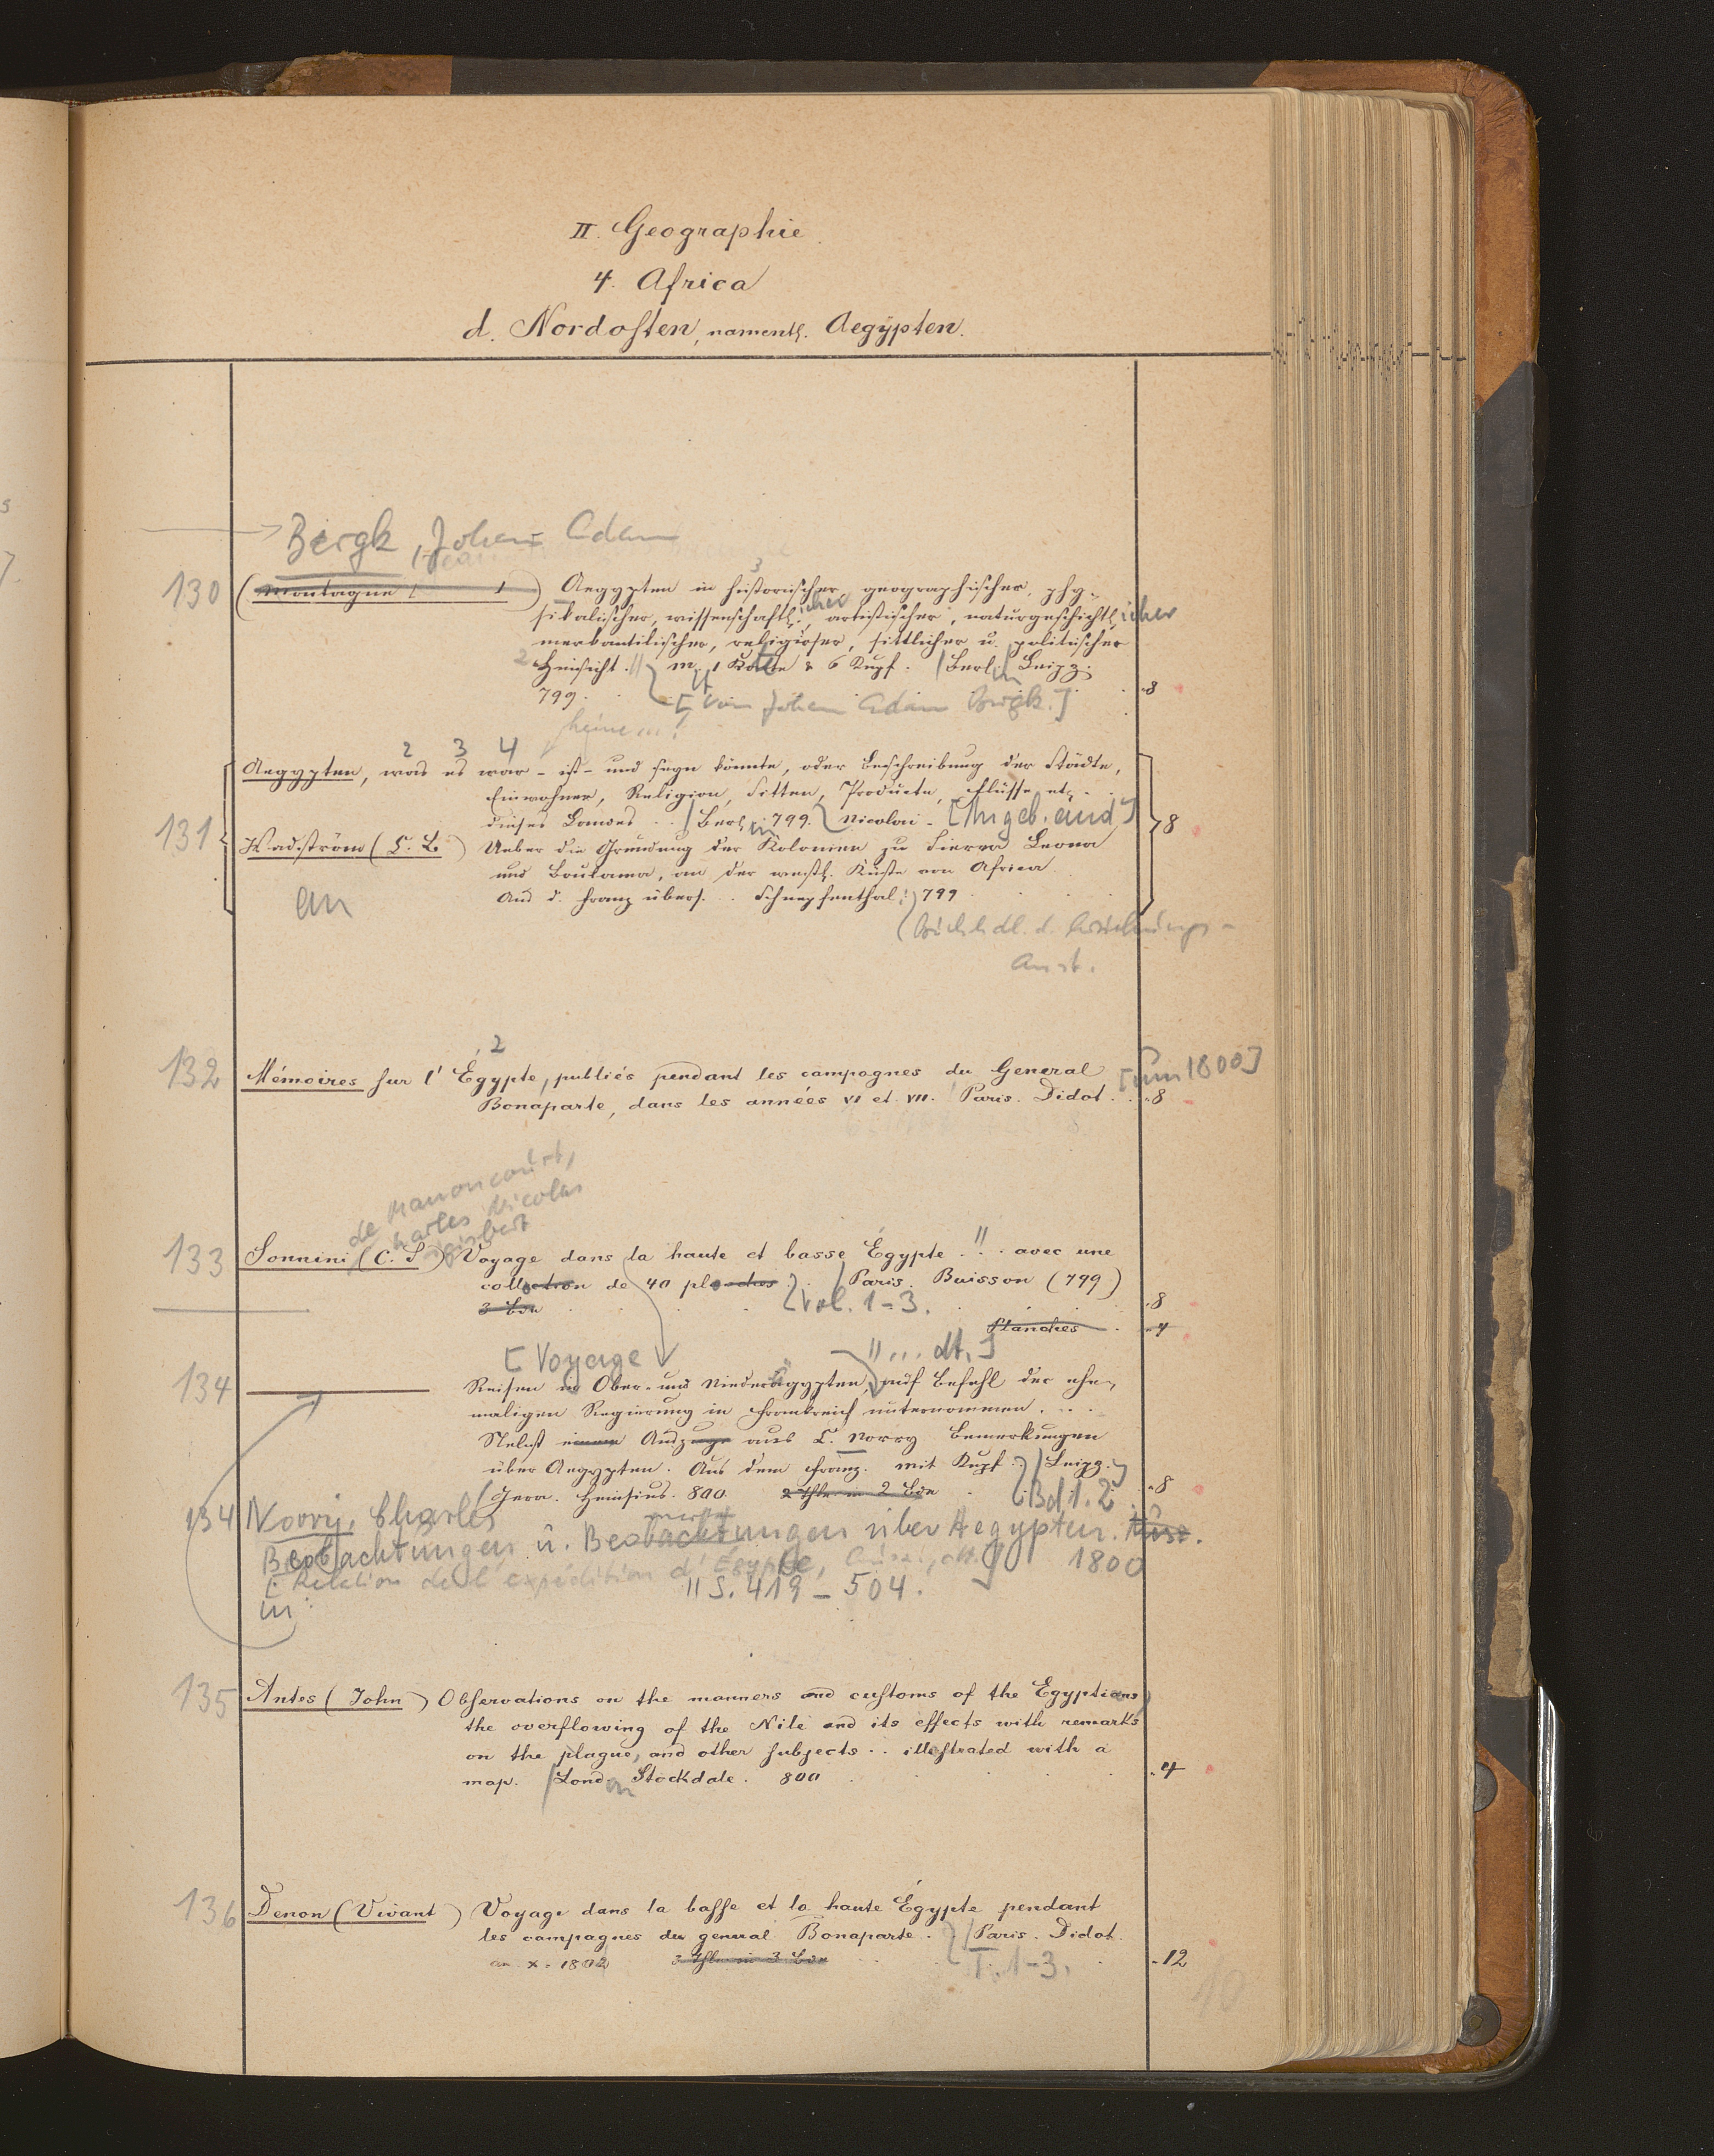 II. Geographie
4. Africa
d. Nordosten, namentl. Aegypten.
Bergk, Johann Adam
130 (Montagne) Aegypten in historischer, geographischer, phy-
sikalischer, wissenschaftlicher, artistischer, naturgeschichtlicher
merkantilischer, religiöser, sittlicher u. politischer
Hinsicht. // m. 1 Karte & 6 Kupf. Berl. Leipz.
799. [Von Johann Adam Bergk.] 8
keine...!
2 3 4
Aegypten, was es war - ist - und seyn könnte, oder Beschreibung der Städte,
Einwohner, Religion, Sitten, Producte, Flüsse etc.
dieses Landes .. Berlin 799. Nicolai - [Angeb. and]
131 Wadström (C. B.) Ueber die Gründung der Kolonien zu Sierra Leona 8
und Boulama, an der westl. Küste von Africa
an Aus d. Franz. übers. .. Schnepfenthal: 799
(Buchhdl. d. Erziehungs-
Anst.
2
132 Mémoires sur l'Égypte, publiés pendant les campagnes du General [um 1800]
Bonaparte, dans les années VI et VII. Paris. Didot. 8
de Manoncourt,
Charles Nicolas
Sigisbert
133 Sonnini (C. S.) Voyage dans la haute et basse Égypte ... // avec une
collection de 40 planches. Paris. Buisson (799)
3 Bde Vol. 1-3. 8
Planches 4
[Voyage // ... dt.]
134 Reisen in Ober- und Niederägypten, auf Befehl der ehe-
maligen Regierung in Frankreich unternommen. ..
Nebst einem Auszuge aus C. Norry Bemerkungen
über Aegypten. Aus dem Franz. mit Kupf. Leipz.
Gera. Heinsius. 800. 2 Thle in 2 Bde Bd 1.2 8
134 Norry, Charles
Beobachtungen u. Bemerkungen über Aegypten.
[Relation de l'expédition d'Égypte, dt.] 1800
in: // S. 419 - 504.
135 Antes (John) Observations on the manners and customs of the Egyptians,
the overflowing of the Nile and its effects with remarks
on the plague, and other subjects .. illustrated with a
map. London Stockdale. 800 4
136 Denon (Vivant) Voyage dans la basse et la haute Égypte pendant
les campagnes du general Bonaparte. Paris. Didot.
an X. 1802 3 Thle in 3 Bde T. 1-3. 12
10